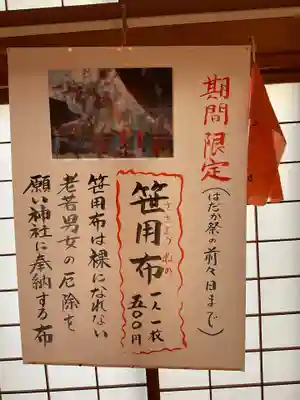 期間限定
(はだか祭の前々日まで)
笹用布
ささようぬの
一人一枚
五〇〇円
笹用布は裸になれない
老若男女の厄除を
願い神社に奉納する布